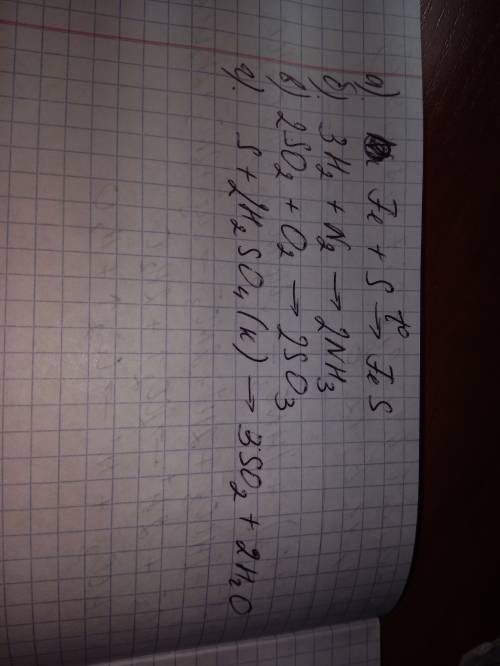 а) Fe + S t°→ FeS
б) 3H₂ + N₂ → 2NH₃
в) 2SO₂ + O₂ → 2SO₃
г) S + 2H₂SO₄ (к) → 3SO₂ + 2H₂O